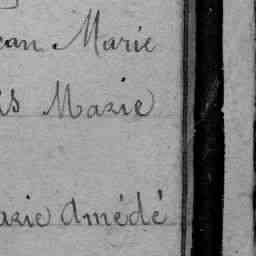 ean Marie
is Marie
arie Amédé